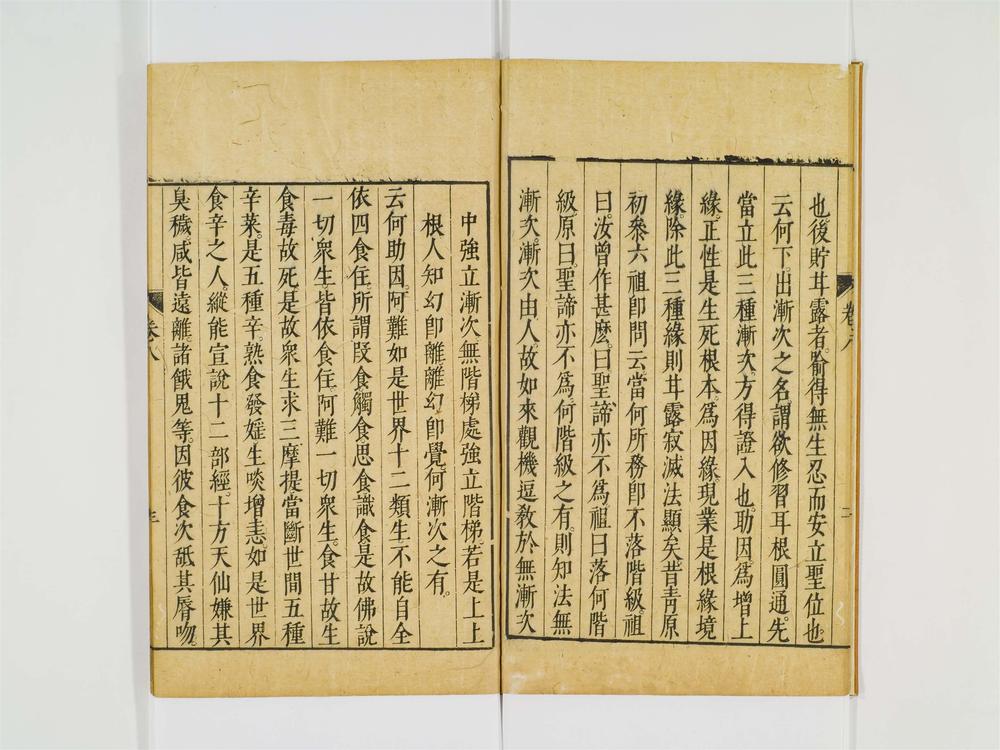 也。後貯甘露者。喻得無生忍而安立聖位也。
云何下。出漸次之名。謂欲修習耳根圓通。先
當立此三種漸次。方得證入也。助因。為增上
緣。正性是生死根本。為因緣。現業是根緣境
緣。除此三種緣則甘露寂滅法顯矣。昔青原
初叅六祖即問云。當何所務即不落階級。祖
曰。汝曾作甚麽。曰。聖諦亦不為。祖曰落何階
級。原曰。聖諦亦不為。何階級之有。則知法無
漸次。漸次由人。故如來觀機逗教。於無漸次
中強立漸次。無階梯處強立階梯。若是上上
根人知幻即離。離幻即覺。何漸次之有。
云何助因。阿難如是世界十二類生不能自全
依四食住。所謂叚食觸食思食識食。是故佛說
一切衆生。皆依食住。阿難一切衆生。食甘故生
食毒故死。是故衆生求三摩提當斷世間五種
辛菜。是五種辛。熟食發婬。生啖增恚。如是世界
食辛之人。縱能宣說十二部經。十方天仙嫌其
臭穢。咸皆遠離。諸餓鬼等。因彼食次舐其脣吻。
卷八